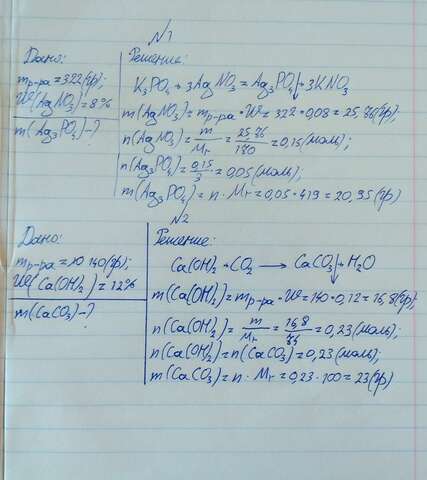 N1
Дано:
mр-ра = 322(гр);
W(AgNO₃) = 8%
m(Ag₃PO₄)-?
Решение:
K₃PO₄ + 3AgNO₃ = Ag₃PO₄↓ + 3KNO₃
m(AgNO₃) = mр-ра · W = 322 · 0,08 = 25,76(гр);
n(AgNO₃) = m/Mr = 25,76/170 = 0,15(моль);
n(Ag₃PO₄) = 0,15/3 = 0,05(моль);
m(Ag₃PO₄) = n · Mr = 0,05 · 419 = 20,95(гр)
N2
Дано:
mр-ра = 140(гр);
W(Ca(OH)₂) = 12%
m(CaCO₃)-?
Решение:
Ca(OH)₂ + CO₂ → CaCO₃↓ + H₂O
m(Ca(OH)₂) = mр-ра · W = 140 · 0,12 = 16,8(гр);
n(Ca(OH)₂) = m/Mr = 16,8/74 = 0,23(моль);
n(Ca(OH)₂) = n(CaCO₃) = 0,23(моль);
m(CaCO₃) = n · Mr = 0,23 · 100 = 23(гр)